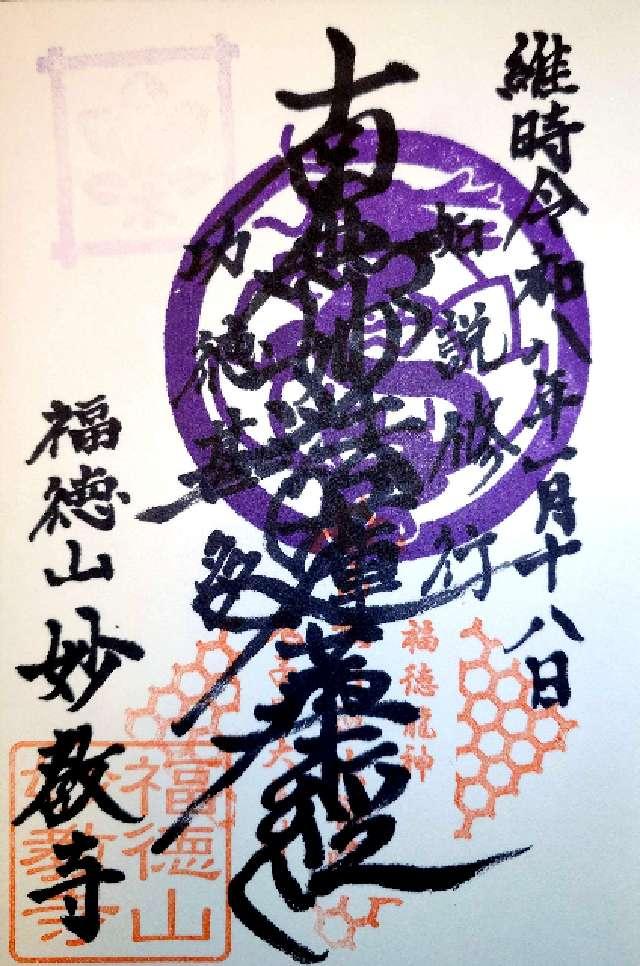 維時令和八年一月十八日
如説修行
南無妙法蓮華経
功徳甚多
福徳山 妙教寺
福徳龍神
福徳山
妙教寺